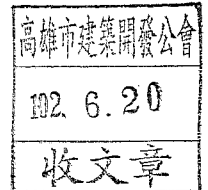 高雄市建築開發公會
102. 6. 20
收文章